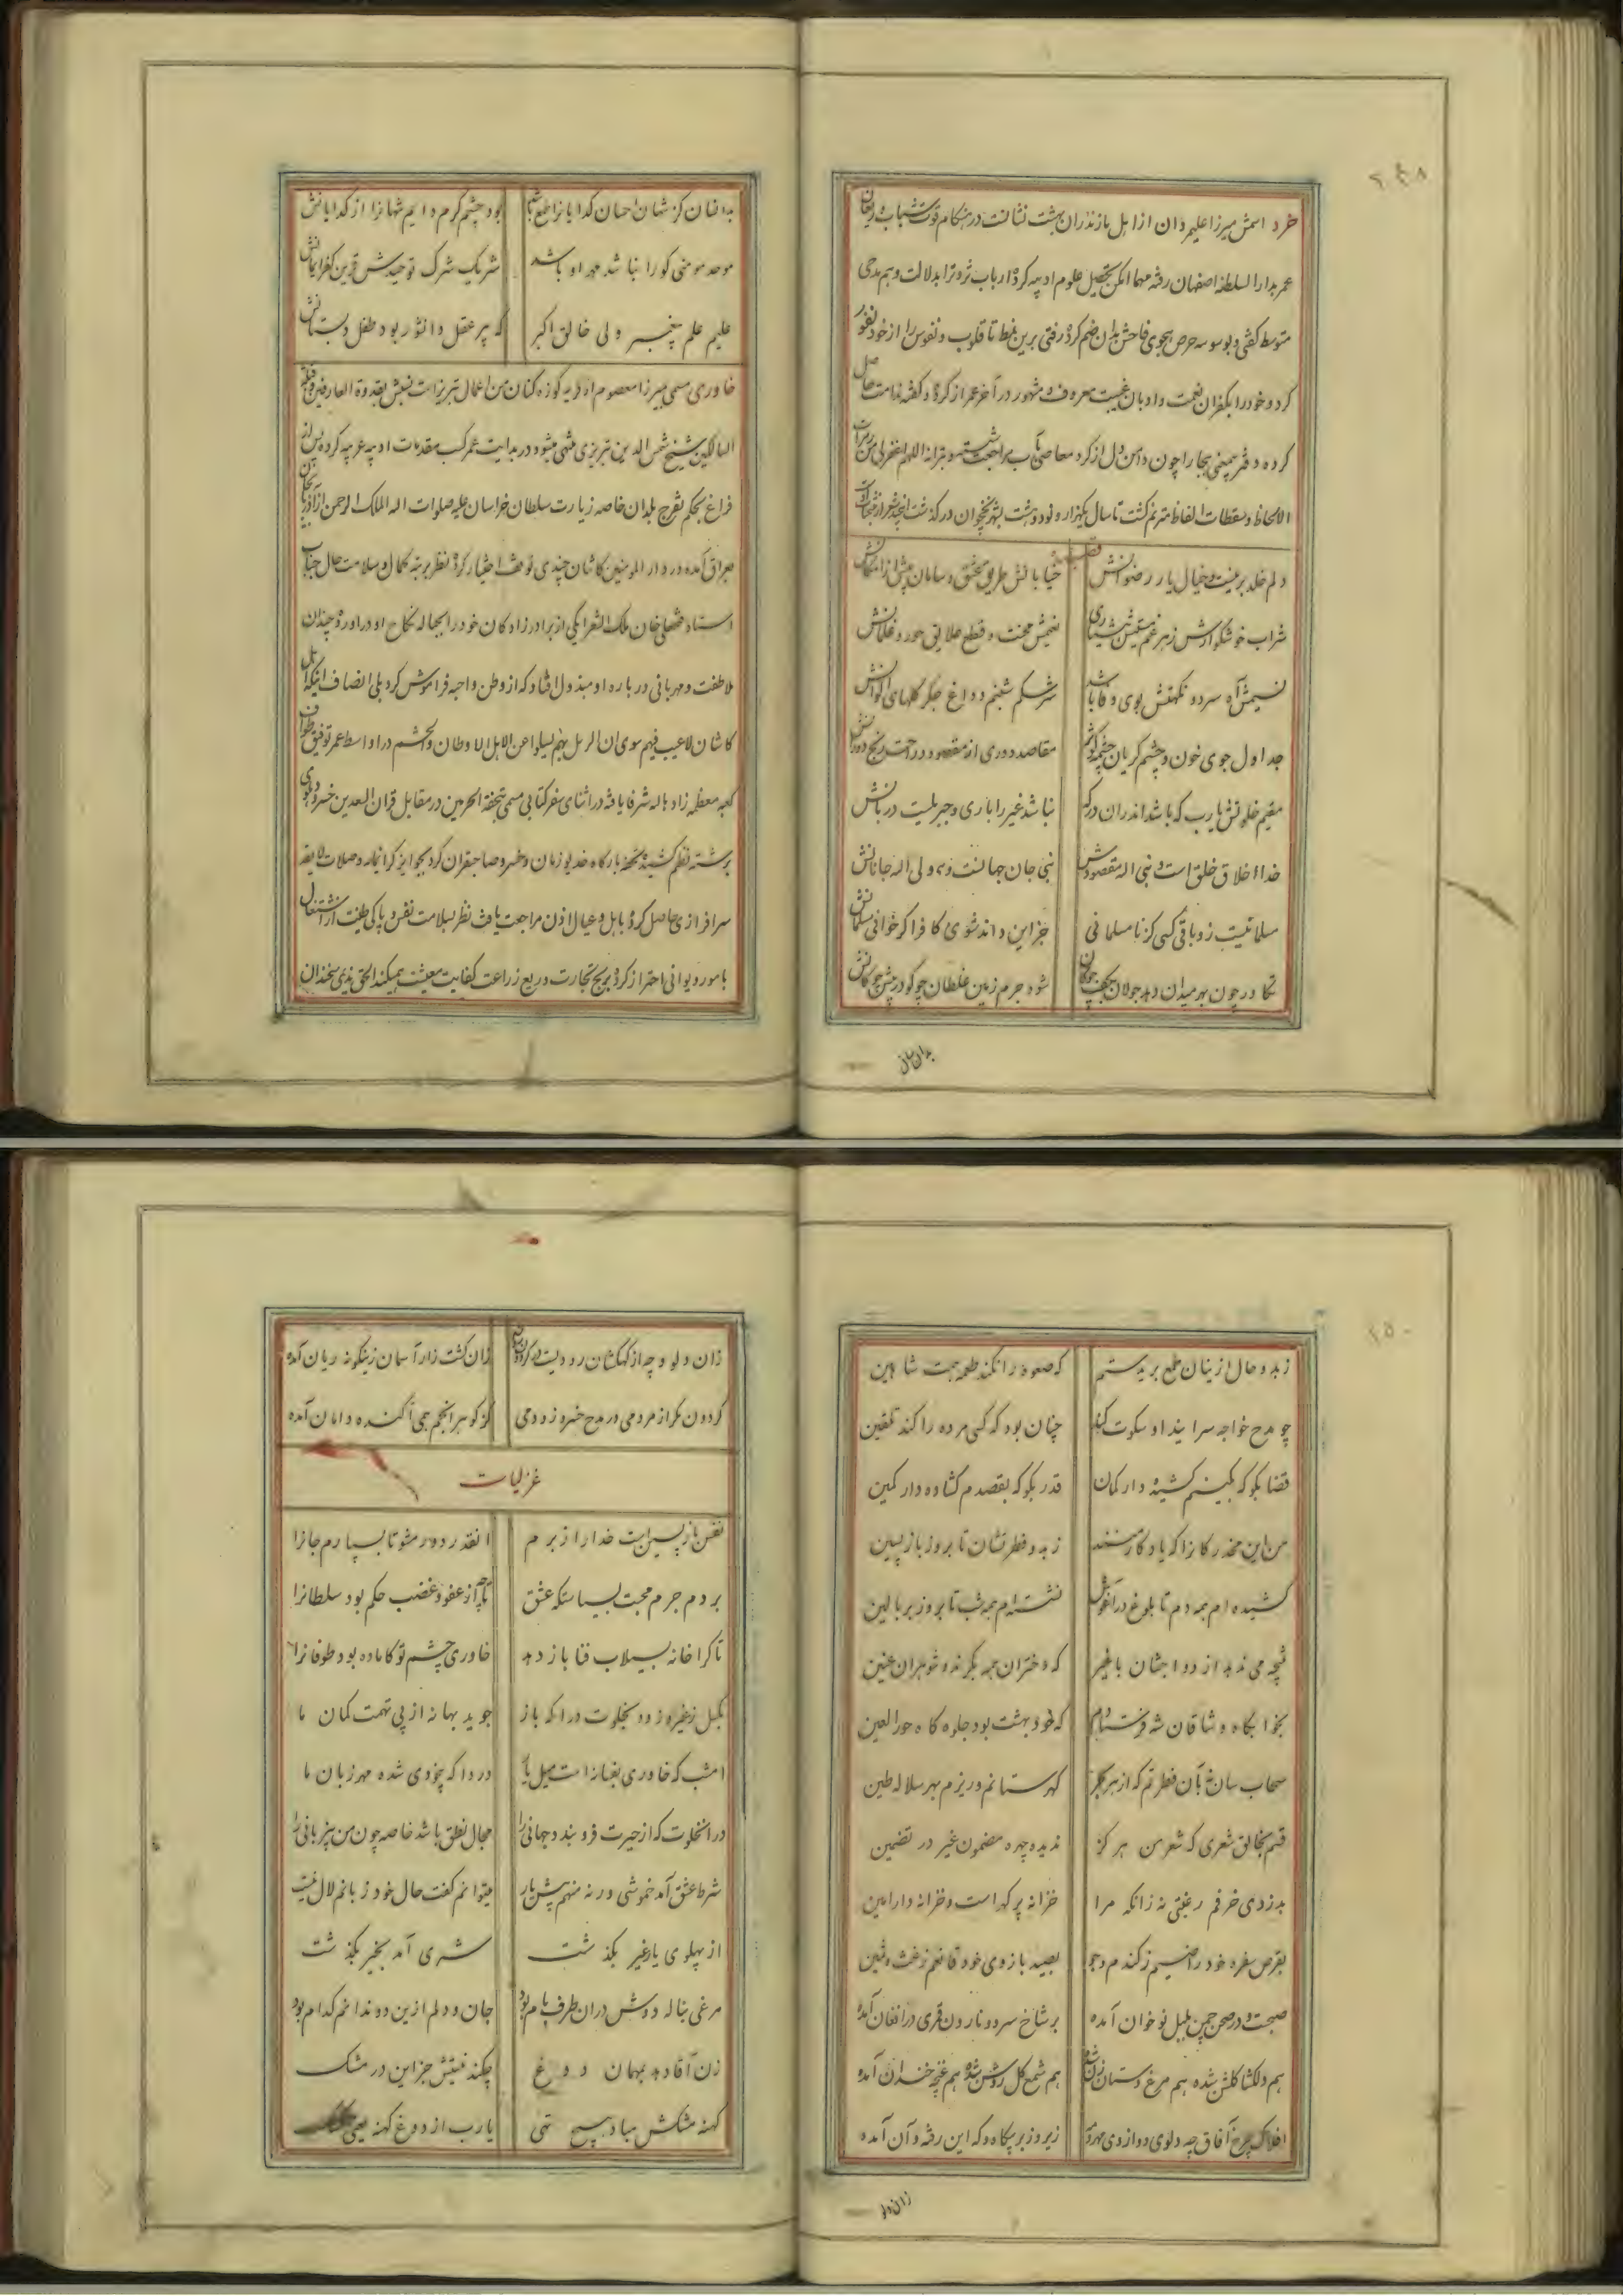 خرد اسمش میرزا علیمردان از اهل مازندران بهشت نشانست در هنکام قوت شباب و ریعان
عمر بدار السلطنه اصفهان رفته مهما امکن تحصیل علوم ادبیه کرده ارباب ثروترا بدلالت وهم مدحی
متوسط کفتی و بوسوسه حرص هجوی فاحش بدان ضم کرده رفتی برین نمط تا قلوب و نفوس را از خود نفور
کرد و خود را بکفران نعمت و ادمان غیبت معروف و مشهور در آخر عمر از کرده و کفته ندامت حاصل
کرده دفتر معنی بجا را چون دامن دل از کرد معاصی بآب شست و بترانه اللهم اغفرلی من رمزات
الالحاظ و سقطات الالفاظ مترنم کشت تا سال یکهزار و دو بشهر نخجوان در کذشت
دلم خلد برینست و خیال یار رضوانش
خیابانش طریق عشق و سامان پیش
شراب خوشکوارش زهر غم
نعیمش محنت و قطع علایق حور و غلمانش
نسیمش آه سرد و نکهتش بوی وفا باشد
سرشکم شبنم و داغ جکر کلهای الوانش
جداول جوی خون و چشم کریان چشمه کوثر
مقاصد دوری از مقصود و راحت رنج دورانش
مقیم خلوتش یارب که باشد اندران درکه
نباشد غیر را باری و جبریلست دربانش
خدا خلاق خلق است و نبی الله مقصودش
نبی جان جهانست و ولی الله جانانش
مسلمانیست زو باقی کسی کز نامسلمانی
جز این داند شوی کافر اکر خوانی مسلمانش
تکاور چون بهر میدان دهد جولان بکف چوکان
شود جرم زمین غلطان چو کو در پیش چوکانش
بدانسان
بدانسان کز شهان احسان کدایانرا طمع باشد
بود چشم کرم دایم شهانرا از کدایانش
موحد مومنی کو را نباشد مهر او باشد
شریک شرک توحیدش قرین کفر ایمانش
علیم علم پیغمبر ولی خالق اکبر
که پیر عقل دانشور بود طفل دبستانش
خاوری مسمی بمیرزا معصوم از قریه کوزه کنان من اعمال تبریزست نسبش بقدوة العارفین و قبلة
السالکین شیخ شمس الدین تبریزی منتهی میشود در بدایت عمر کسب مقدمات ادبیه عربیه کرده پس از
فراغ بحکم تفرج بلدان خاصه زیارت سلطان خراسان علیه صلوات الله الملک الرحمن از آذربایجان
بعراق آمده در دار المومنین کاشان چندی توقف اختیار کرده نظر برتبه کمال و سلامت حال جناب
استاد فتحعلی خان ملک الشعرا یکی از برادرزادکان خود را بحباله نکاح او در آورده چندان
ملاطفت و مهربانی در باره او مبذول افتاد که از وطن و احبه فراموش کرد بلی انصاف اینکه اهل
کاشان لا عیب فیهم سوی ان النزیل بهم یسلوا عن الاهل و الاوطان و الحشم در اواسط عمر توفیق طواف
کعبه معظمه زاد الله شرفا یافته در اثنای سفر کتابی مسمی بتحفة الحرمین در مقابل قران السعدین خسرو دهلوی
برشته نظم کشیده تحفه بارکاه خدیو زمان و خسرو صاحبقران کرد بجوایز کرانمایه و صلات لایقه
سرافرازی حاصل کرده باهل و عیال اذن مراجعت یافت نظر بسلامت نفس و پاکی طینت از اشتغال
بامور دیوانی احتراز کرده بربح تجارت و ریع زراعت کفایت معیشت میکند الحق مردی سخندان
زبد و حال ازینان طمع بریدستم
که صعوه را نکند طعمه جفت شاهین
چو مدح خواجه سرایند او سکوت کند
چنان بود که کسی مرده را کند تلقین
قضا بکو که بکینم کشیده دار کمان
قدر بکو که بقصدم کشاده دار کمین
من این مخدرکانرا که یادکار منند
ز بدو فطرتشان تا بروز بازپسین
کشیده‌ام همه دم تا بلوغ در آغوش
نشسته‌ام همه شب تا بروز بر بالین
نتیجه می ندهد ازدواجشان با غیر
که دختران همه بکرند و شوهران عنین
بخوابکاه وشاقان شه فرستادم
که خود بهشت بود جلوه کاه حور العین
سحاب سان شد آن فطرتم که از هر بحر
کهر ستانم و ریزم بهر سلاله طین
قسم بخالق شعری که شعر من هرکز
ندیده چهره مضمون غیر در تضمین
بدزدی خزفم رغبتی نه زانکه مرا
خزانه پر کهر است و خزانه دار امین
بقرص سفره خود راضیم ز کندم و جو
بصید بازوی خود قانعم ز غث و سمین
صبحست و در صحن چمن بلبل نوا خوان آمده
بر شاخ سرو و نارون قمری در افغان آمده
هم دلکشا کلشن شده هم مرغ دستان زن شده
هم شمع کل روشن شده هم غنچه خندان آمده
افلاک چرخ آفاق چه دلوی دو از وی مهر و مه
زیر و زبر بیکاه و که این رفته و آن آمده
زان دلو
زان دلو و چه از کهکشان رودیست
زان کشت زار آسمان زینکونه ریان آمده
کردون مکر از مردمی در مدح خسرو زد دمی
کز کوهر انجم همی آکنده دامان آمده
غزلیات
نفس بازپسین است خدا را از برم
انقدر دور مشو تا بسپارم جانرا
بردم جرم محبت بسیاستکه عشق
تا چه از عفو و غضب حکم بود سلطانرا
تا کرا خانه بسیلاب فنا باز دهد
خاوری چشم تو کاماده بود طوفانرا
بکسل ز غیر و زود بخلوت درا که باز
جوید بهانه از پی تهمت کمان ما
امشب که خاوری بفسانه است میل یار
دردا که بیخودی شده مهر زبان ما
در انخلوت که از حیرت فرو بندد جهانی را
مجال نطق باشد خاصه چون من بیزبانی را
شرط عشق آمد خموشی ورنه منهم پیش یار
میتوانم کفت حال خود زبانم لال نیست
از پهلوی یار غیر بکذشت
شری آمد بخیر بکذشت
مرغی بناله دوش در ان طرف بام بود
جان و دلم ازین دو ندانم کدام بود
زن آقا دهد بمهمان دوغ
چکند نیستش جز این در مشک
کهنه مشکش مباد هیچ تهی
یارب از دوغ کهنه یعنی